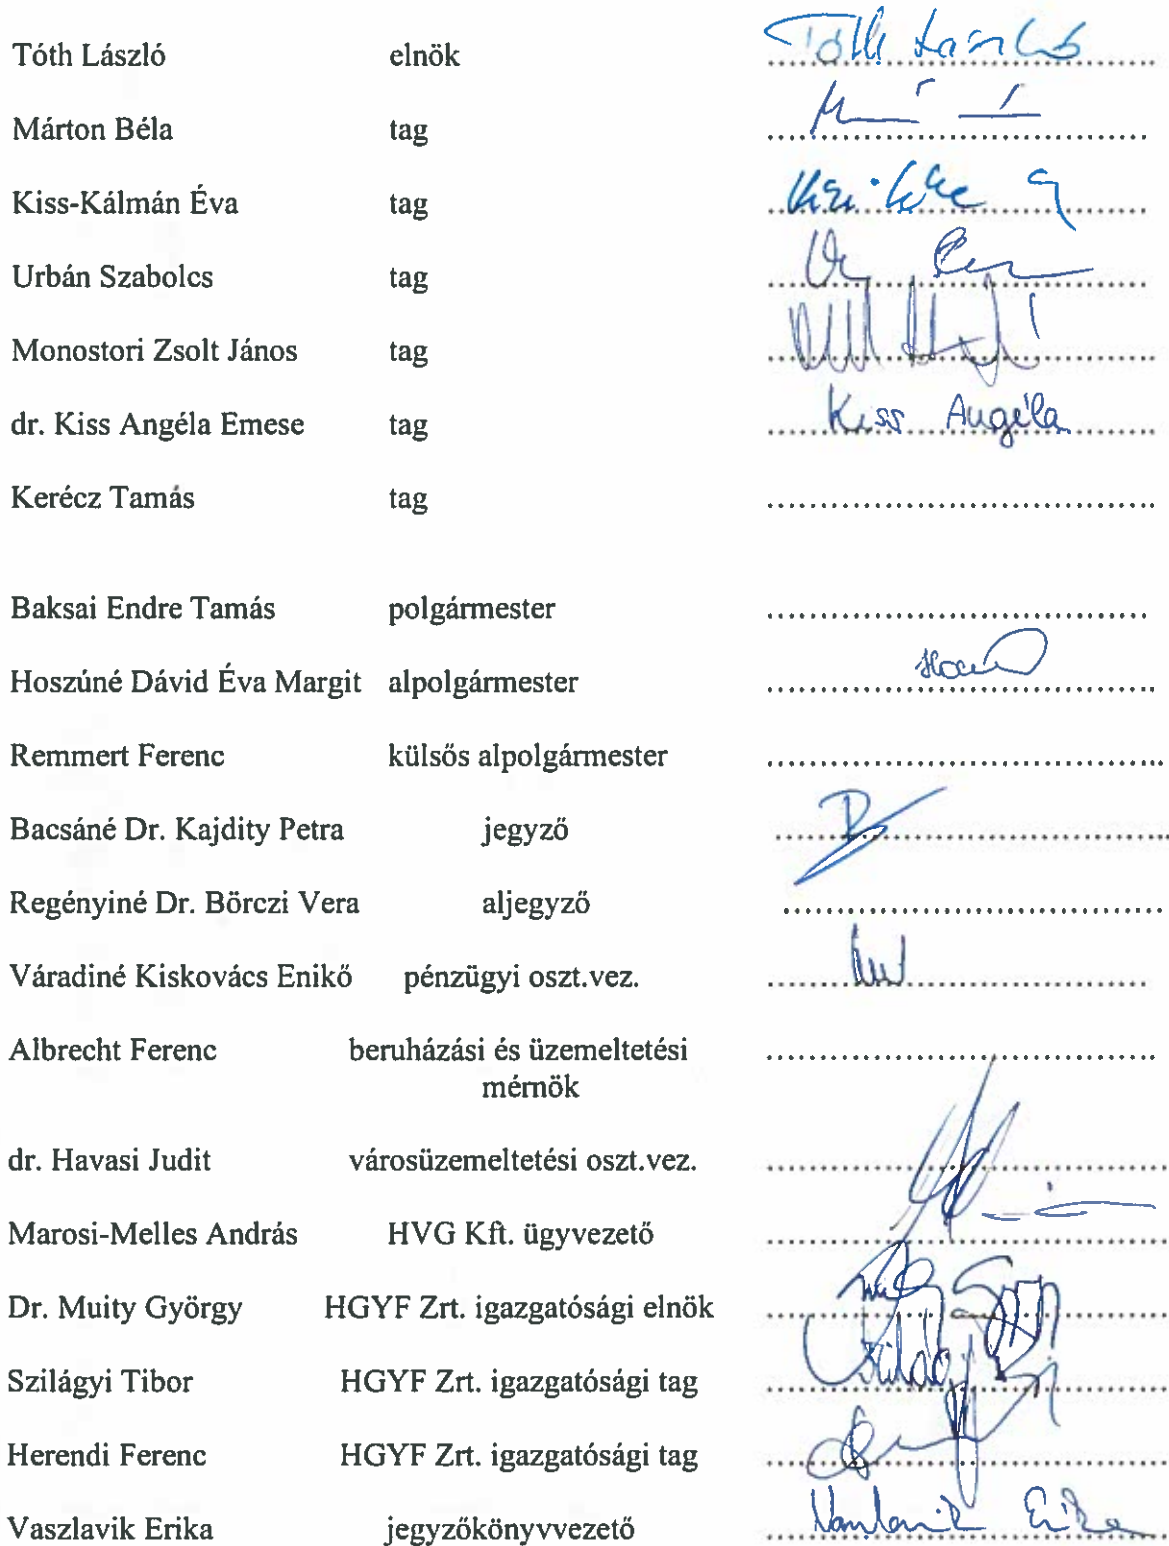 Tóth László elnök Tóth László
Márton Béla tag
Kiss-Kálmán Éva tag
Urbán Szabolcs tag
Monostori Zsolt János tag
dr. Kiss Angéla Emese tag Kiss Angéla
Kerécz Tamás tag
Baksai Endre Tamás polgármester
Hoszúné Dávid Éva Margit alpolgármester
Remmert Ferenc külsős alpolgármester
Bacsáné Dr. Kajdity Petra jegyző
Regényiné Dr. Börczi Vera aljegyző
Váradiné Kiskovács Enikő pénzügyi oszt.vez.
Albrecht Ferenc beruházási és üzemeltetési
mérnök
dr. Havasi Judit városüzemeltetési oszt.vez.
Marosi-Melles András HVG Kft. ügyvezető
Dr. Muity György HGYF Zrt. igazgatósági elnök
Szilágyi Tibor HGYF Zrt. igazgatósági tag
Herendi Ferenc HGYF Zrt. igazgatósági tag
Vaszlavik Erika jegyzőkönyvvezető Vaszlavik Erika